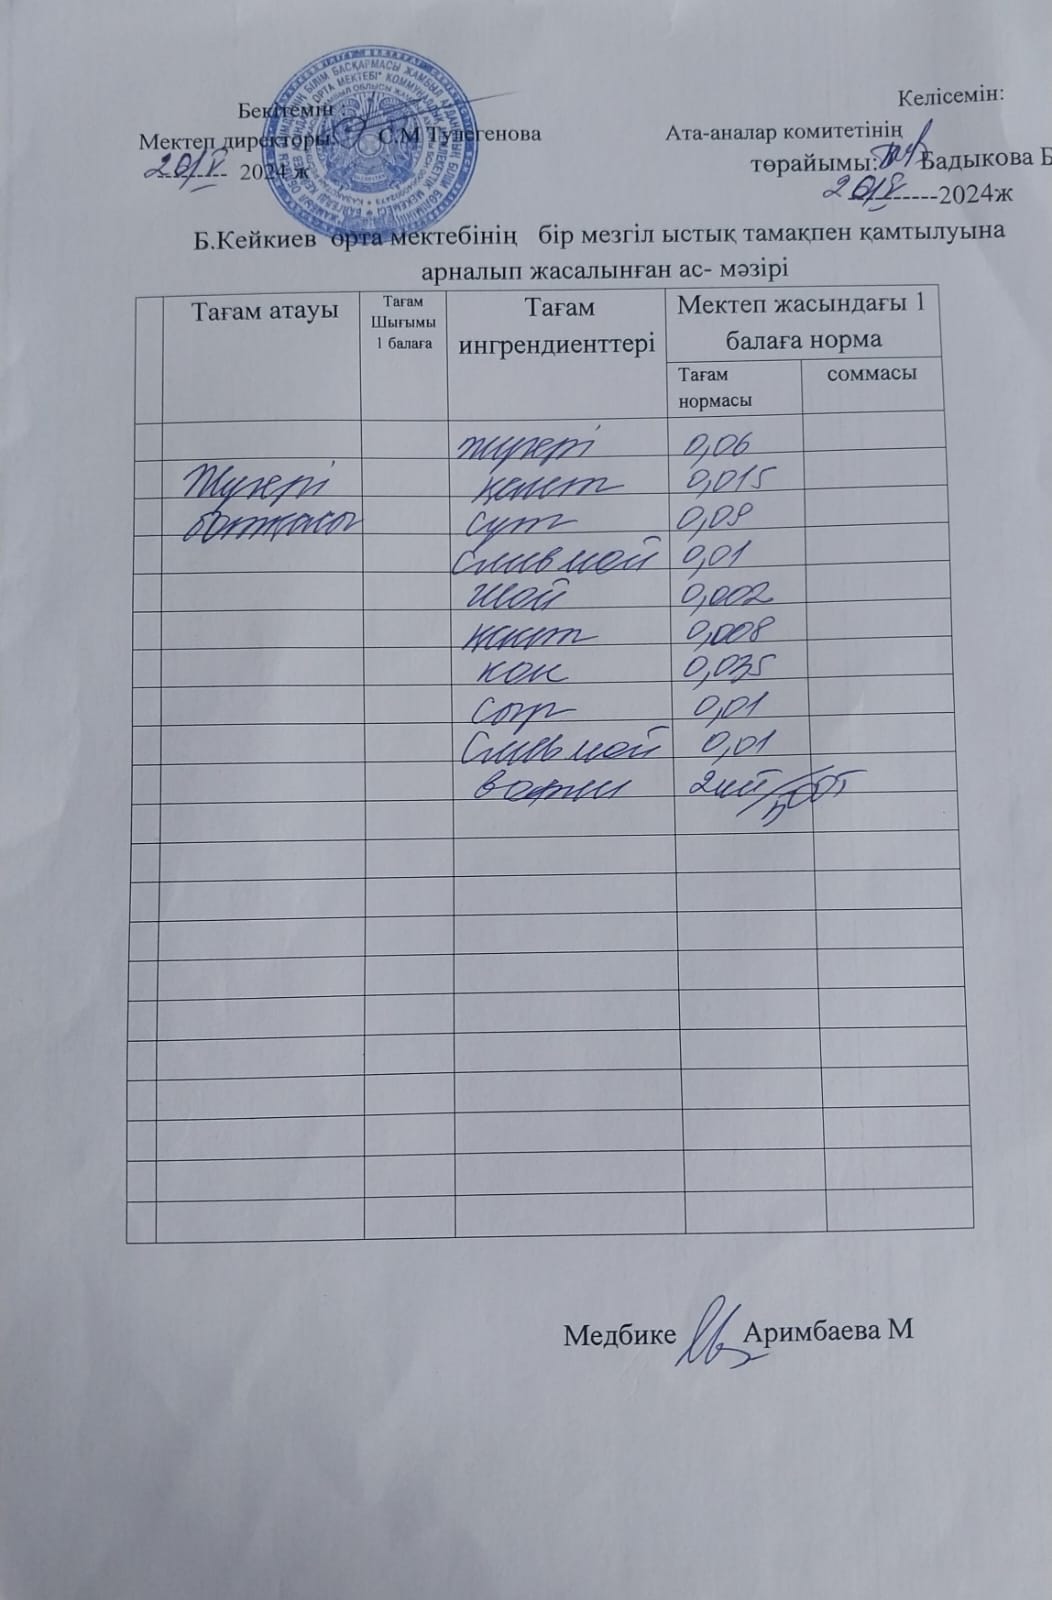 Бекітемін :
Мектеп директоры: С.М Тулегенова
20/V 2024 ж
Келісемін:
Ата-аналар комитетінің
төрайымы: Бадыкова Б
20/V ------2024ж
Б.Кейкиев орта мектебінің бір мезгіл ыстық тамақпен қамтылуына
арналып жасалынған ас- мәзірі
Тағам атауы
Тағам
Шығымы
1 балаға
Тағам
ингрендиенттері
Мектеп жасындағы 1
балаға норма
Тағам
нормасы
соммасы
жүгері 0,06
Жүгері 0,015
ботқасы сүт 0,09
Слив май 0,01
Шай 0,002
қант 0,008
нан 0,035
Сыр 0,01
Слив май 0,01
вафли
Медбике Аримбаева М